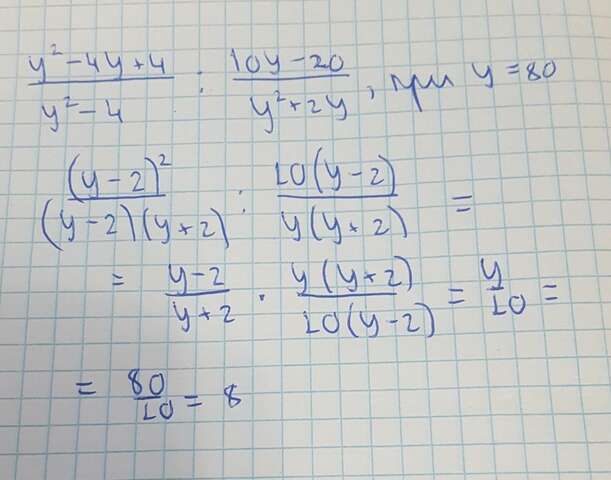 y² - 4y + 4 / y² - 4 : 10y - 20 / y² + 2y , при y = 80
(y - 2)² / (y - 2)(y + 2) : 10(y - 2) / y(y + 2) =
= y - 2 / y + 2 · y(y + 2) / 10(y - 2) = y / 10 =
= 80 / 10 = 8